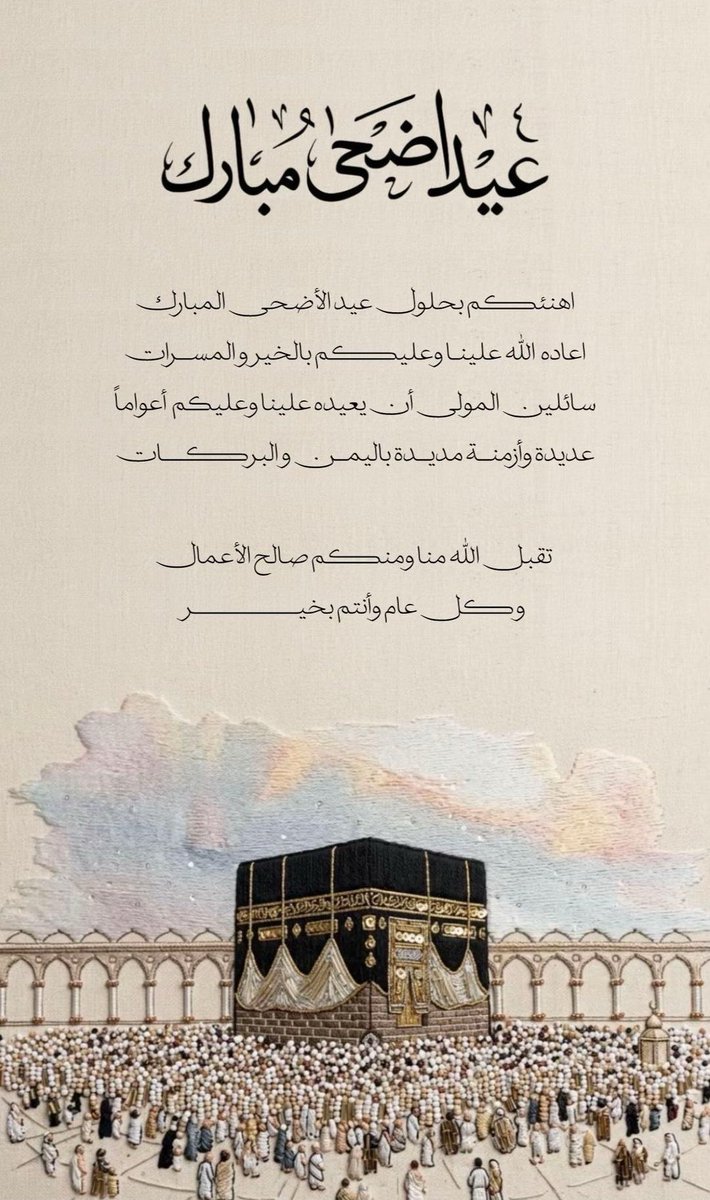 عيد اضحى مبارك
اهنئكم بحلول عيد الأضحى المبارك
اعاده الله علينا وعليكم بالخير والمسرات
سائلين المولى أن يعيده علينا وعليكم أعواماً
عديدة وأزمنة مديدة باليمن والبركات
تقبل الله منا ومنكم صالح الأعمال
وكل عام وأنتم بخير